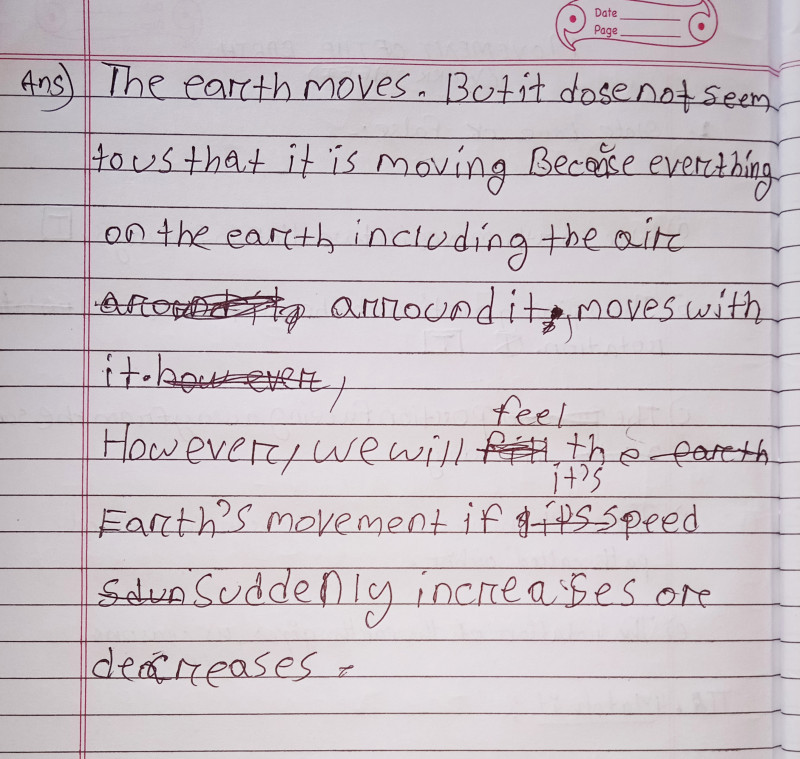 Date
Page
Ans) The earth moves. But it dose not seem
to us that it is moving Because everthing
on the earth including the air
arround it, moves with
it. however,
feel
However, we will the earth
it's
Earth's movement if its speed
sdun suddenly increases ore
decreases -